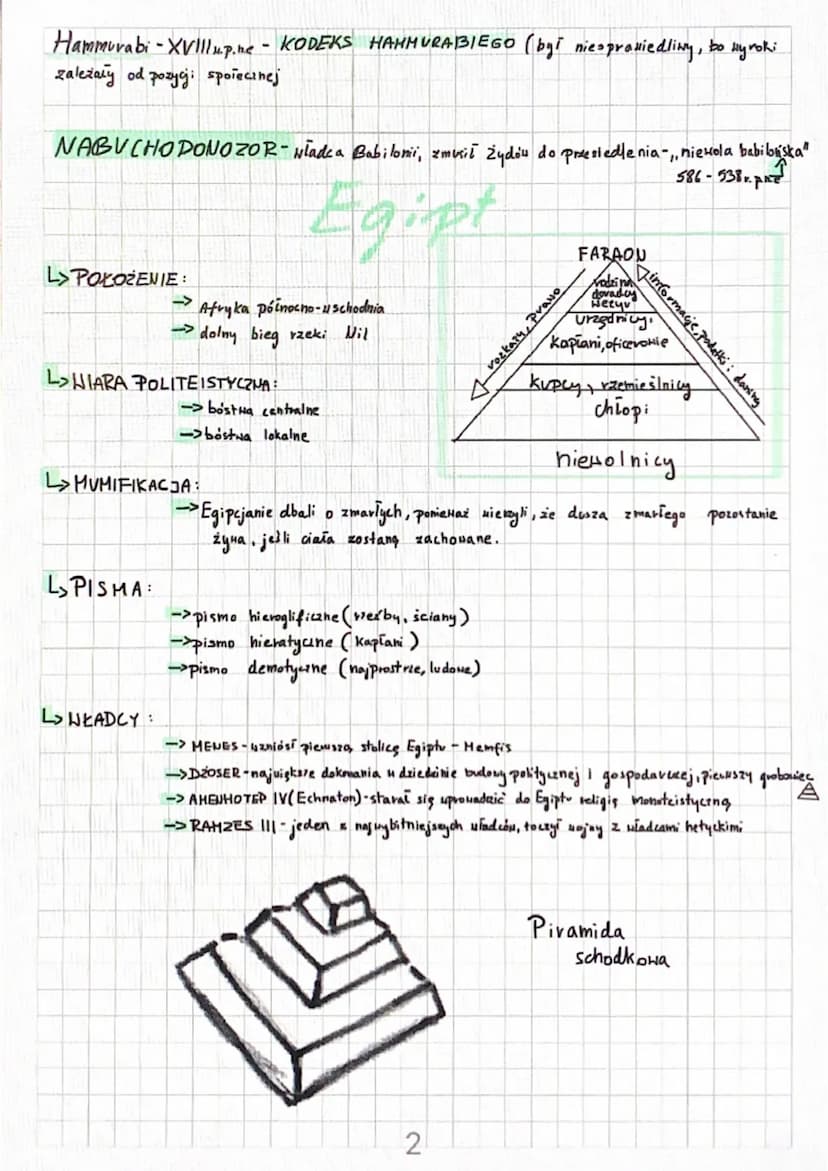 Hammurabi - XVIII w.p.n.e - KODEKS HAMMURABIEGO (był niesprawiedliwy, bo wyroki
zależały od pozycji społecznej
NABUCHODONOZOR - władca Babilonii, zmusił Żydów do przesiedlenia - "niewola babilońska"
586 - 538 r. p.n.e
Egipt
↳ POŁOŻENIE:
-> Afryka północno-wschodnia
-> dolny bieg rzeki Nil
↳ WIARA POLITEISTYCZNA:
-> bóstwa centralne
-> bóstwa lokalne
FARAON
rodzina
doradcy
wezyr
urzędnicy,
kapłani, oficerowie
kupcy, rzemieślnicy
chłopi
niewolnicy
rozkazy, prawo
informacje, podatki i daniny
↳ MUMIFIKACJA:
-> Egipcjanie dbali o zmarłych, ponieważ wierzyli, że dusza zmarłego pozostanie
żywa, jeśli ciała zostaną zachowane.
↳ PISMA:
-> pismo hieroglificzne (rzeźby, ściany)
-> pismo hieratyczne (kapłani)
-> pismo demotyczne (najprostsze, ludowe)
↳ WŁADCY:
-> MENES - wzniósł pierwszą stolicę Egiptu - Memfis
-> DŻOSER - największe dokonania w dziedzinie budowy politycznej i gospodarczej, pierwszy grobowiec
-> AMENHOTEP IV (Echnaton) - starał się wprowadzić do Egiptu religię monoteistyczną
-> RAMZES III - jeden z najwybitniejszych władców, toczył wojny z władcami hetyckimi
Piramida
schodkowa
2